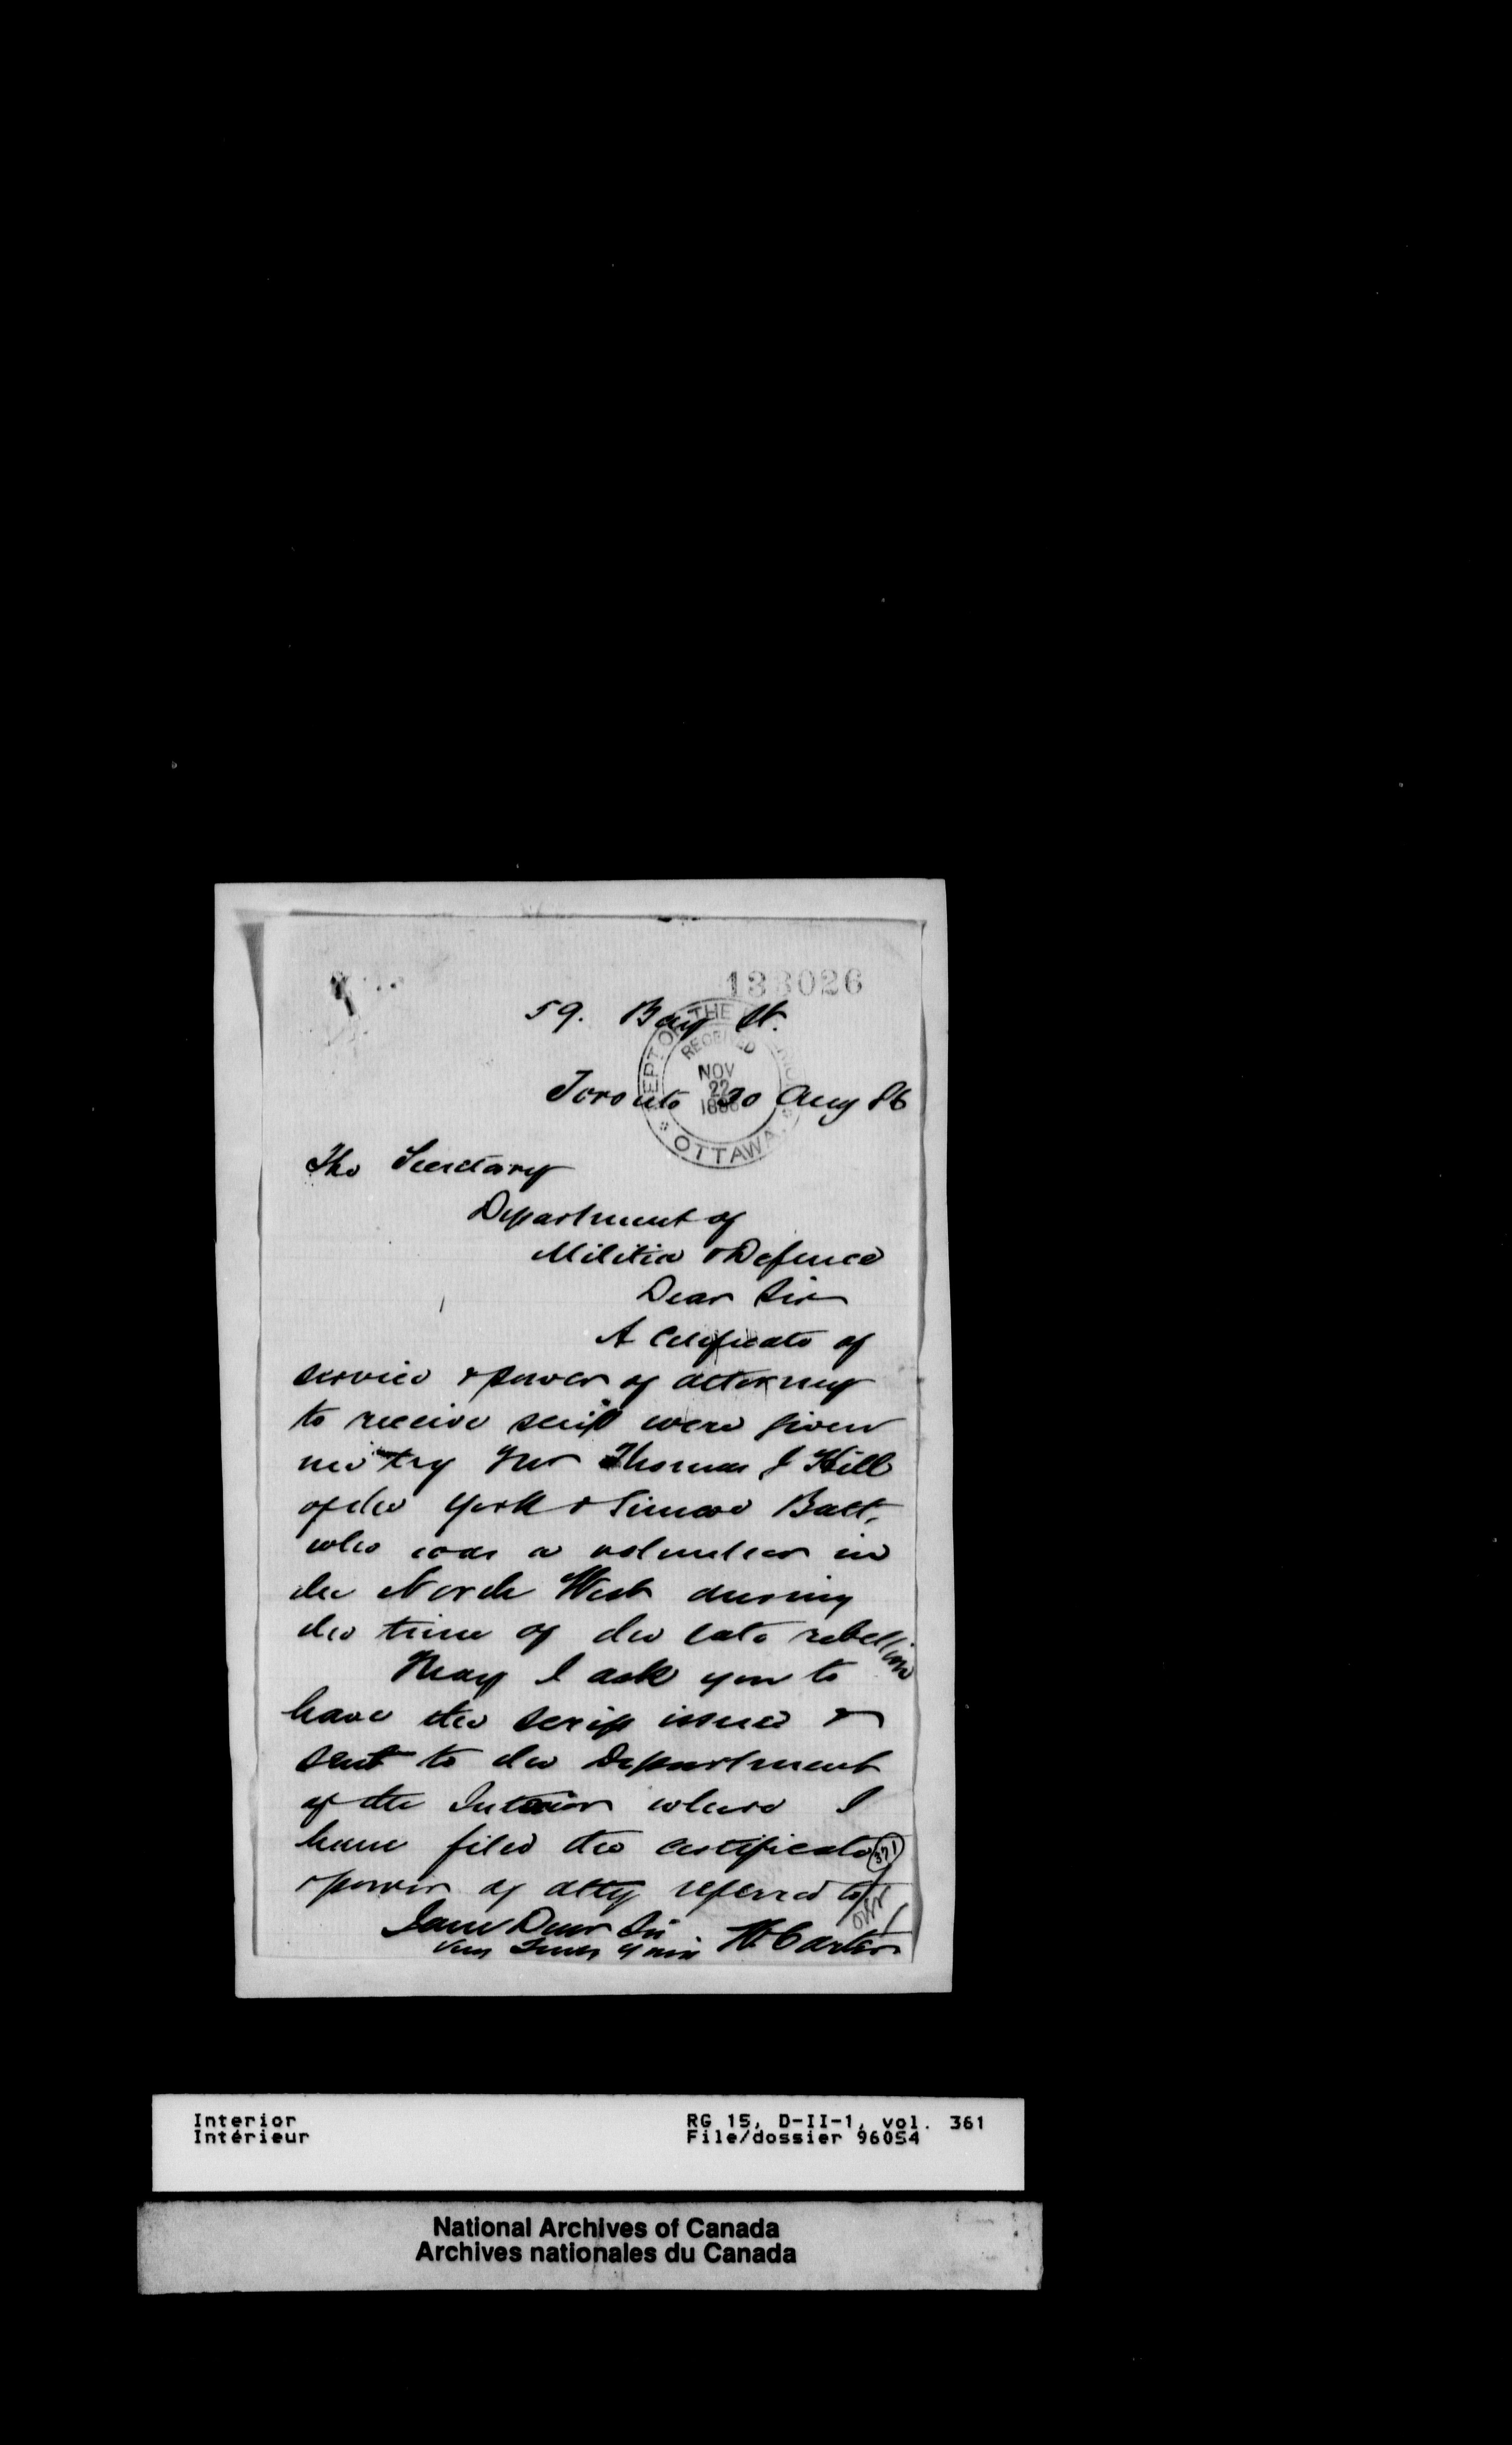 133026
59. Bay St.
DEPT OF THE INTERIOR
RECEIVED
NOV
22
1886
OTTAWA.
Toronto 30 Aug 86
The Secretary
Department of
Militia & Defence
Dear Sir
A Certificate of
service & power of attorney
to receive scrip were given
me by Mr Thomas J Hill
of the York & Simcoe Batt.
who was a volunteer in
the North West during
the time of the late rebellion
May I ask you to
have the scrip issued &
sent to the Department
of the Interior where I
have filed the certificate
371
& power of atty referred to
I am Dear Sir
Very Truly Yours W Carter
Interior
Intérieur
RG 15, D-II-1, vol. 361
File/dossier 96054
National Archives of Canada
Archives nationales du Canada